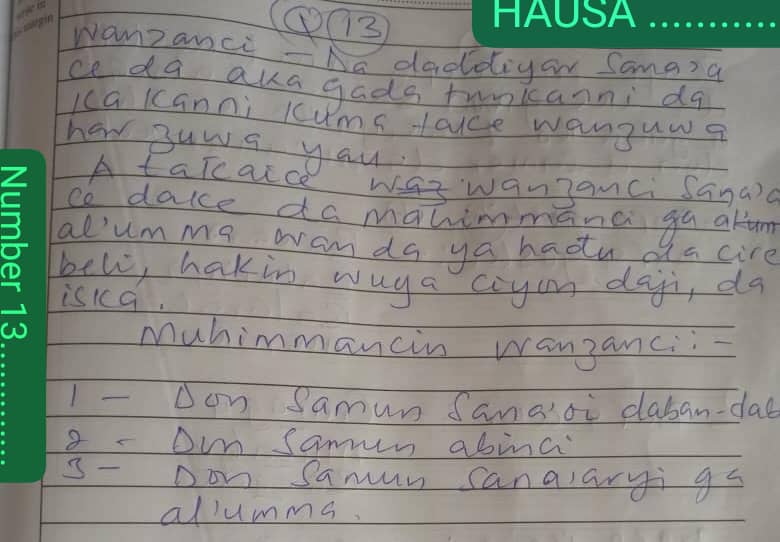 HAUSA ............
Q 13
Wanzanci - Na daddiyar Sana'a
ce da aka gada tun kanni da
ka kanni kuma take wanzuwa
har zuwa yau.
A takaice wanzanci Sana'a
ce dake da mahimmanci ga akum
al'umma wanda ya hadu da cire
beli, hakin wuya ciyon daji, da
iska.
Muhimmancin wanzanci:-
1 - Don Samun Sana'oi daban-dab
2 - Don Samun abinci
3 - Don Samun sana'aryi ga
al'umma.
Number 13...............